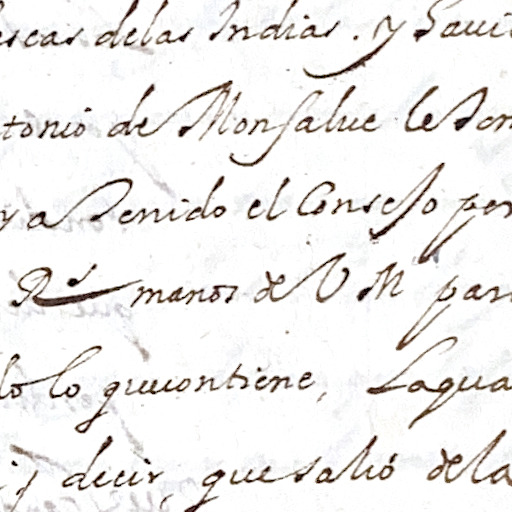 escas delas Indias. y Saui
tonio de Monsalue le Ten
y a Tenido el Consejo por
Rs manos de V M par
lo lo que contiene, Laqua
decir, que salió dela